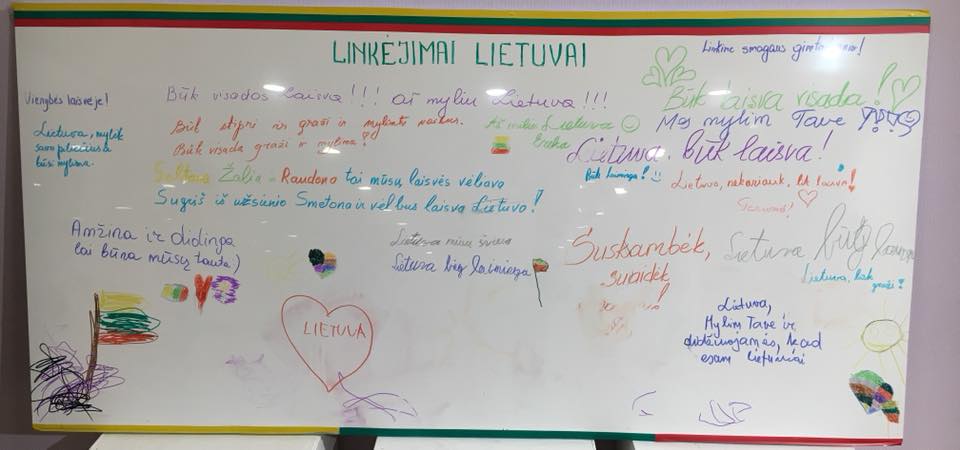 LINKĖJIMAI LIETUVAI
Linkime smagaus gimtadienio!
Vienybės laisvėje!
Būk visados laisva!!! aš myliu Lietuva!!!
Būk laisva visada!
Mes mylim Tave
Būk stipri ir graži ir mylėsi vaikus.
Būk visada graži ir mylima!
Aš myliu Lietuva
Lietuva, mylėk
savo piliečius ir
būsi mylima.
Lietuva, būk laisva!
Būk laiminga!
Lietuva, nekariauk,
Geltona Žalia Raudona tai mūsų laisvės vėliava
Sugrįš iš užsienio Smetona ir vėl bus laisva Lietuva!
Amžina ir didinga
lai būna mūsų tauta:)
Lietuva mūsų
Lietuva būg laiminga
Suskambėk,
suaidėk
Lietuva būg laiminga
Lietuva, būk
graži!
LIETUVA
Lietuva,
Mylim Tave ir
didžiuojamės, kad
esam lietuviai